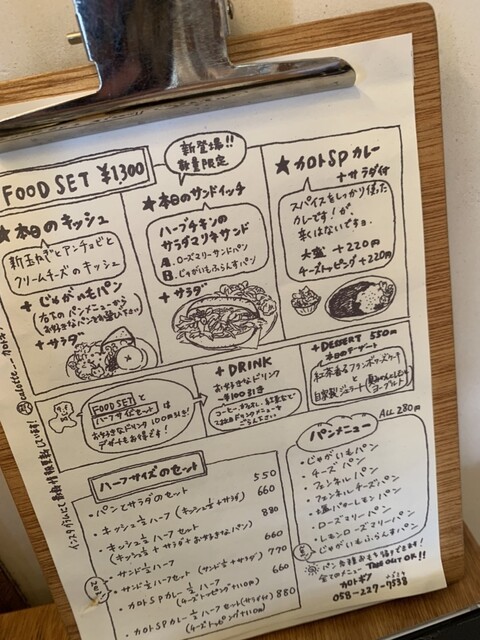 FOOD SET ¥1,300
新登場!!
数量限定
★本日のキッシュ
新玉ねぎとアンチョビと
クリームチーズのキッシュ
+じゃがいもパン
(右下のパンメニューから
お好きなパンを選び下さい)
+サラダ
★本日のサンドイッチ
ハーブチキンの
サラダマリネサンド
A.ローズマリーサンドパン
B.じゃがいもふらんすパン
+サラダ
★カロトSPカレー
+サラダ付
スパイスをしっかり使った
カレーです!が、
辛くはないです。
大盛 +220円
チーズトッピング+220円
FOOD SETと
ハーフサイズセットは
お好きなドリンク100円引き!
デザートもお得です!
+DRINK
お好きなドリンク
-¥100引き
コーヒー、
紅茶など
ドリンクメニューを
ごらん下さい
+DESSERT 550円
本日のデザート
紅茶香るフランボワーズケーキ
と
自家製ジェラート
ヨーグルト
ハーフサイズのセット
・パンとサラダのセット 550
・キッシュ½ハーフ 660
・キッシュ½ハーフセット 880
(キッシュ½+サラダ+お好きなパン)
・サンド½ハーフ 660
・サンド½ハーフセット (サンド½+サラダ) 770
・カロトSPカレー½ハーフ 660
(チーズトッピング+110円)
・カロトSPカレー½ハーフセット(サラダ付) 880
(チーズトッピング+110円)
パンメニュー
ALL 280円
・じゃがいもパン
・チーズパン
・フェンネルパン
・フェンネルチーズパン
・バターレモンパン
・ローズマリーパン
・レモンローズマリーパン
・じゃがいもふらんすパン
全てのメニュー TAKE OUT OK!!
カロトギフ
058-227-7538
インスタグラムにて最新情報更新しています!